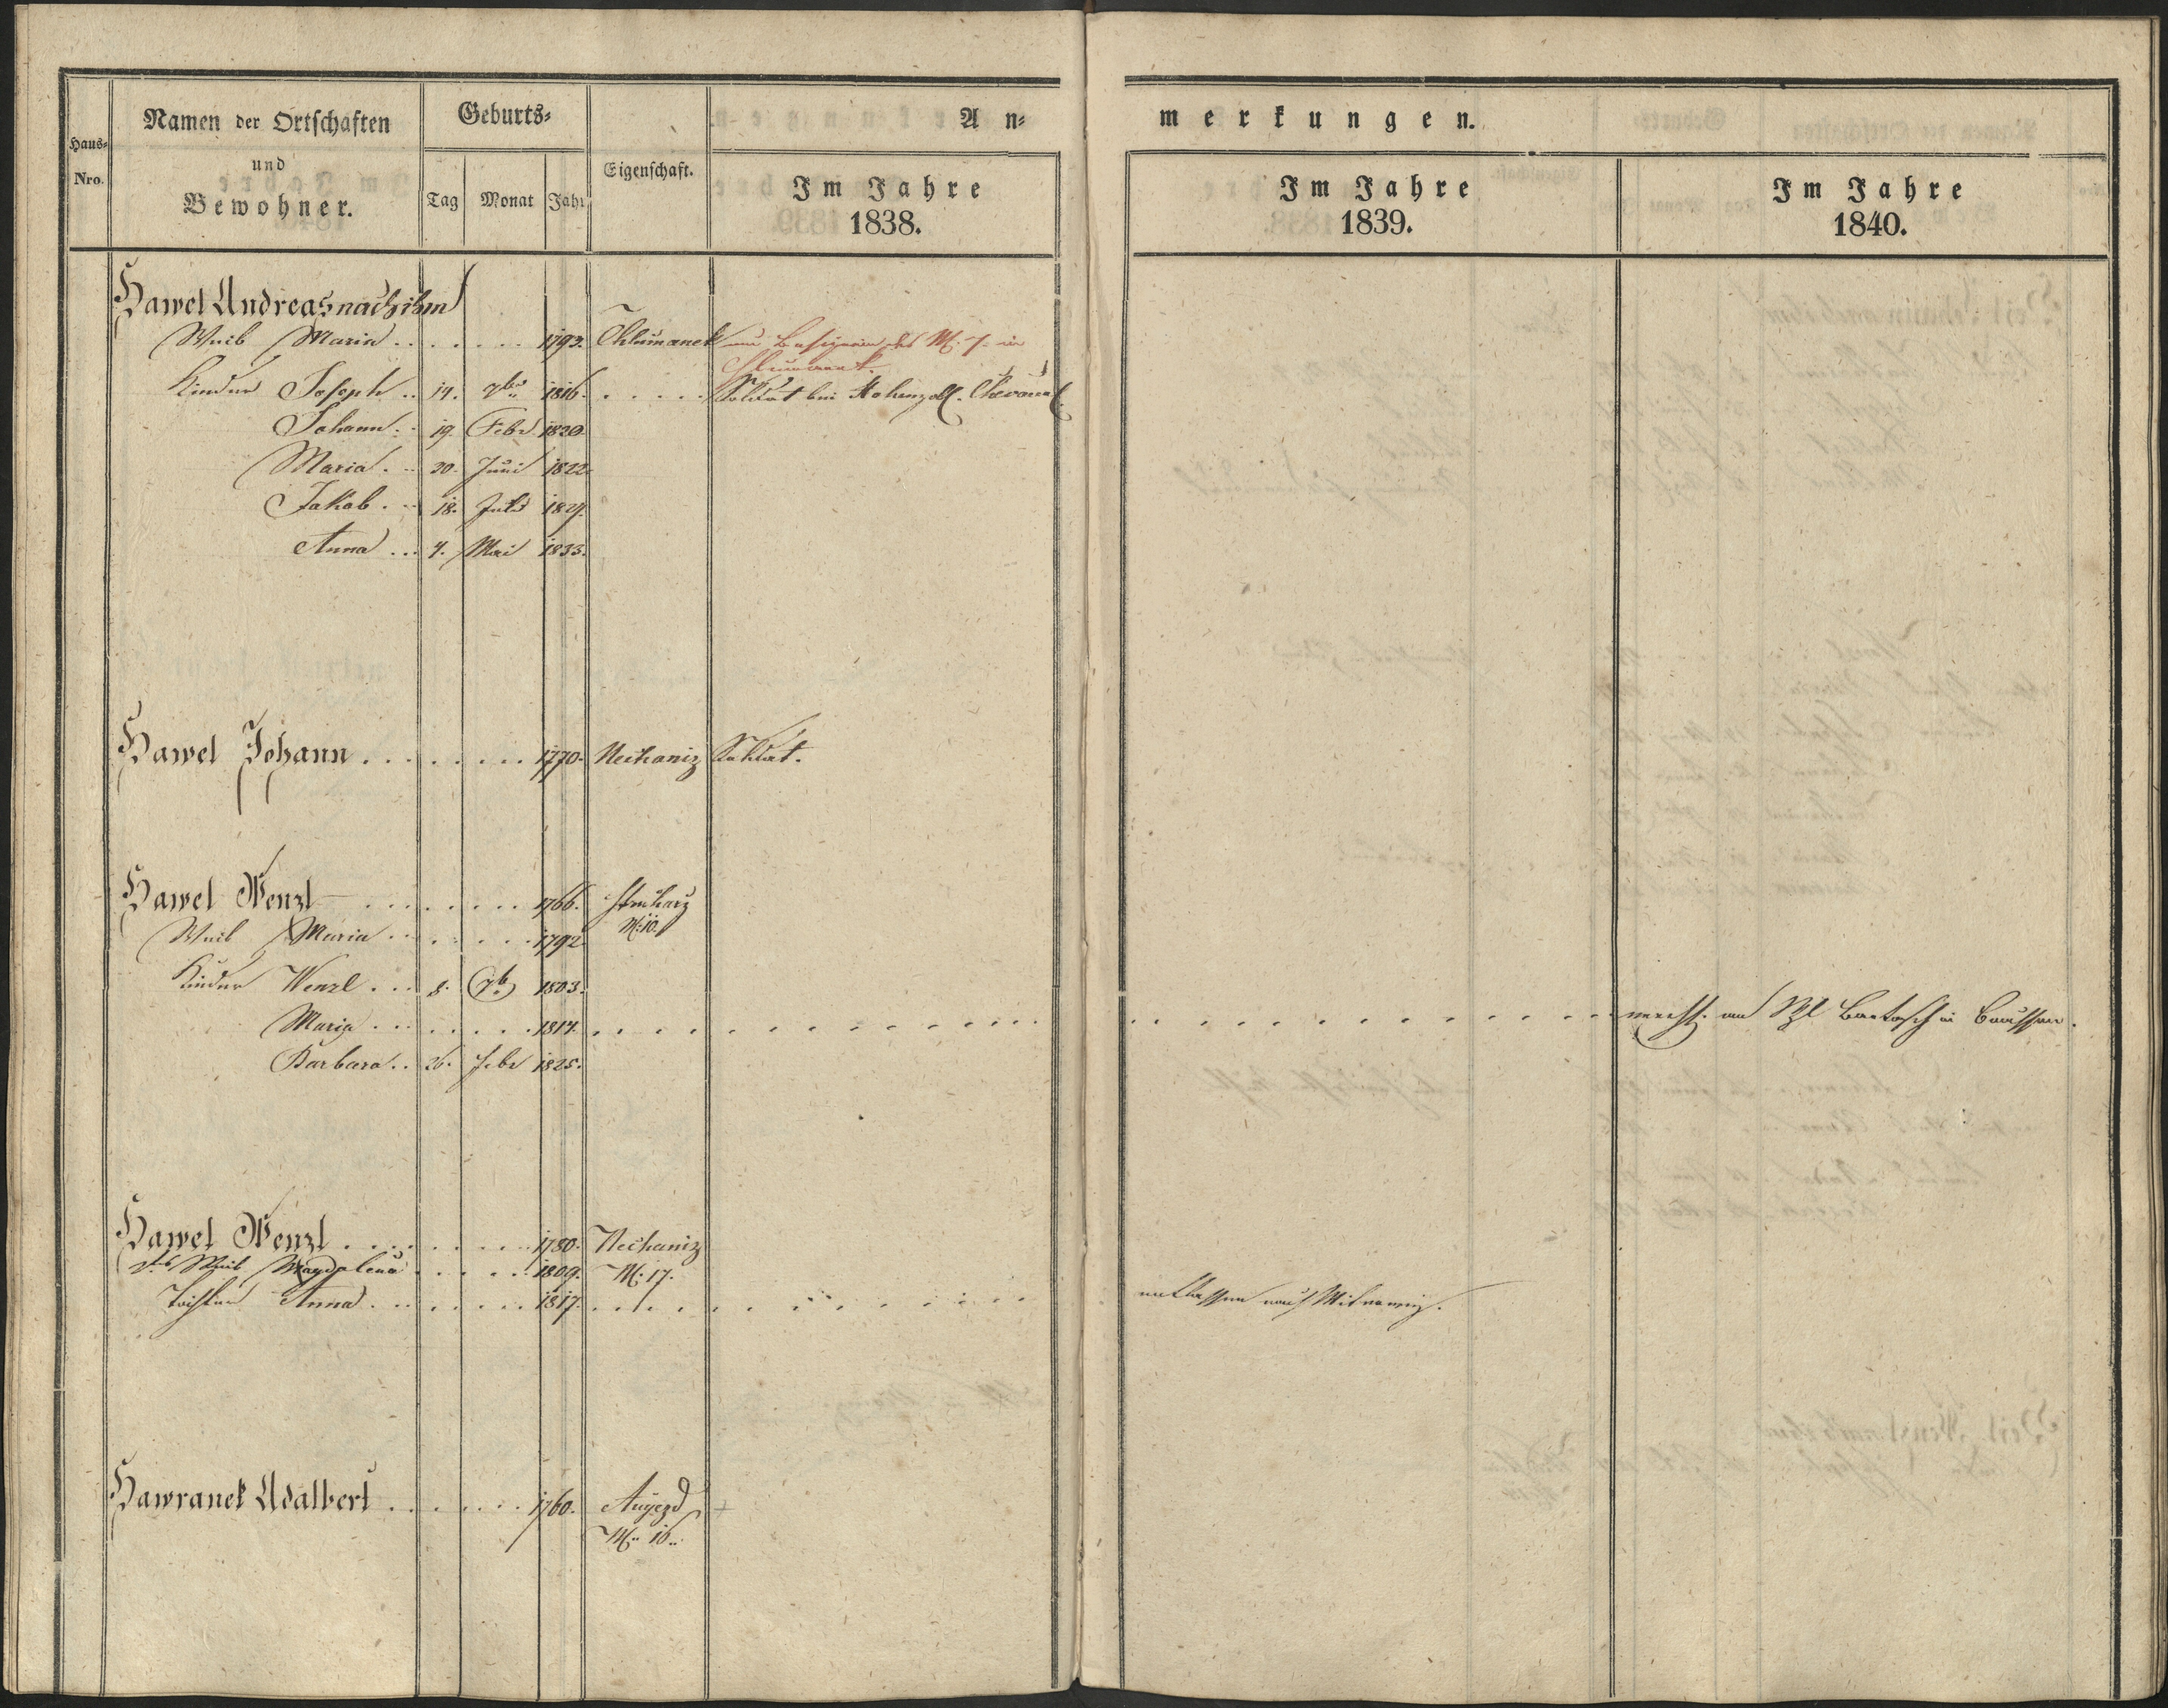 Haus-Nro.
Namen der Ortschaften
und
Bewohner.
Geburts-
Tag Monat Jahr
Eigenschaft.
An-
Im Jahre
1838.
merkungen.
Im Jahre
1839.
Im Jahre
1840.
Hawel Andreas nach ihm
Weib Maria . . . . . . . 1793. Chlumanek
Kinder Joseph .. 14. 7ber 1816. . . . . . Soldat bei Hohenzoll.
Johann .. 19. Febr 1820.
Maria .. 30. Juni 1822.
Jakob .. 18. Juli 1829.
Anna ... 4. Mai 1833.
Hawel Johann . . . . . . . . 1770. Nechaniz Soldat.
Hawel Wenzl . . . . . . . 1766.
N: 10.
Weib Maria . . . . . . . 1792
Kinder Wenzl ... 8. 7b 1803.
Maria . . . . . . . 1814. . . . . . . . in
Barbara .. 26. Febr 1825.
Hawel Wenzl . . . . . . . . 1780. Nechaniz
Weib Magdalena . . . . . 1809. N: 17.
Tochter Anna . . . . . . . 1817. . . . . . . . entlassen nach
Hawranek Adalbert . . . . . . . 1760. Augezd
N: 10.